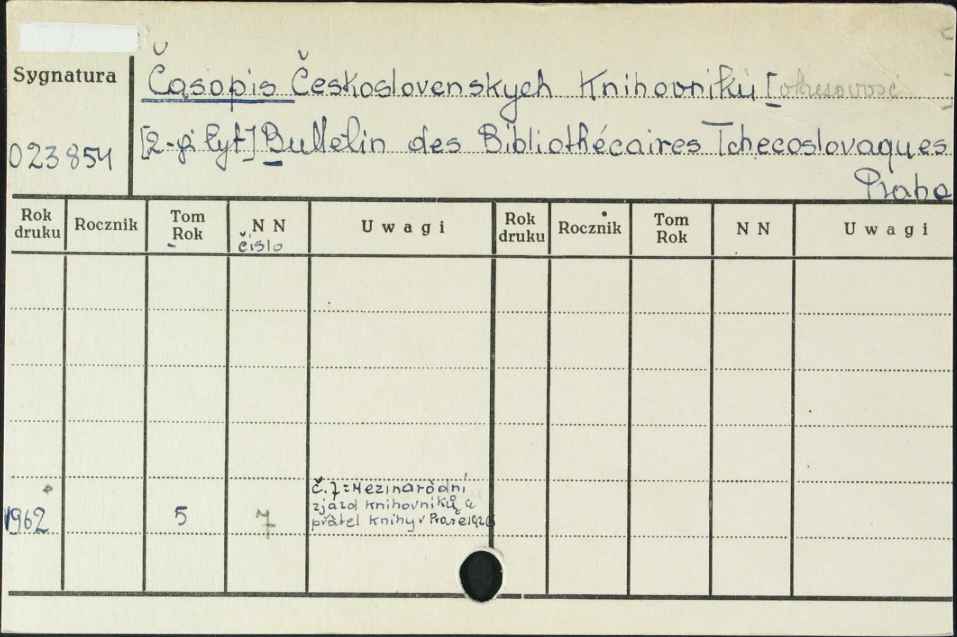 Sygnatura
Časopis Československych Knihovniků [
023854
[2-gi tyt] Bulletin des Bibliothécaires Tchecoslovaques
Praha
Rok druku Rocznik Tom Rok N N číslo Uwagi Rok druku Rocznik Tom Rok N N Uwagi
č. 7 = Mezinarodní
zjazd knihovníků a
přátel knihy v Praze 1926
1962 5 7